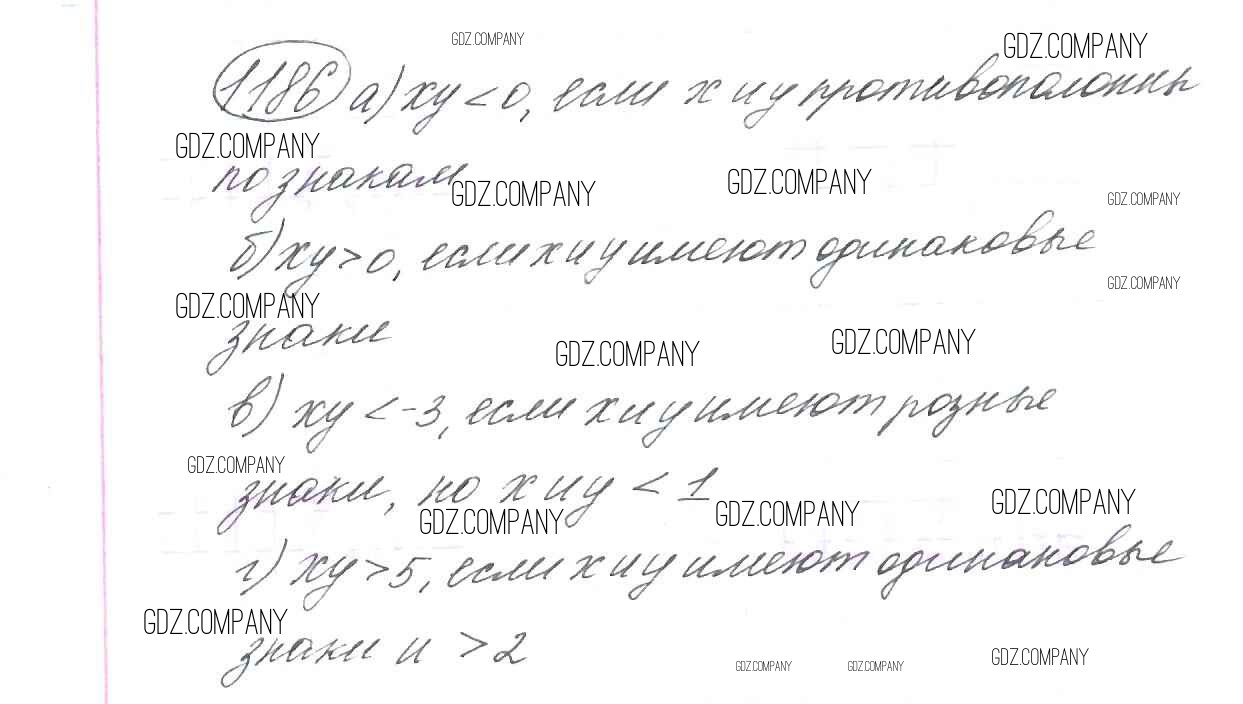 GDZ.COMPANY
GDZ.COMPANY
1186 а) xy < 0, если x и y противополопны
GDZ.COMPANY
по знакам
GDZ.COMPANY
GDZ.COMPANY
GDZ.COMPANY
б) xy > 0, если x и y имеют одинаковые
GDZ.COMPANY
GDZ.COMPANY
знаки
GDZ.COMPANY
GDZ.COMPANY
в) xy < -3, если x и y имеют розные
GDZ.COMPANY
знаки, но x и y < 1
GDZ.COMPANY
GDZ.COMPANY
GDZ.COMPANY
г) xy > 5, если x и y имеют одинаковые
GDZ.COMPANY
знаки и > 2
GDZ.COMPANY
GDZ.COMPANY
GDZ.COMPANY